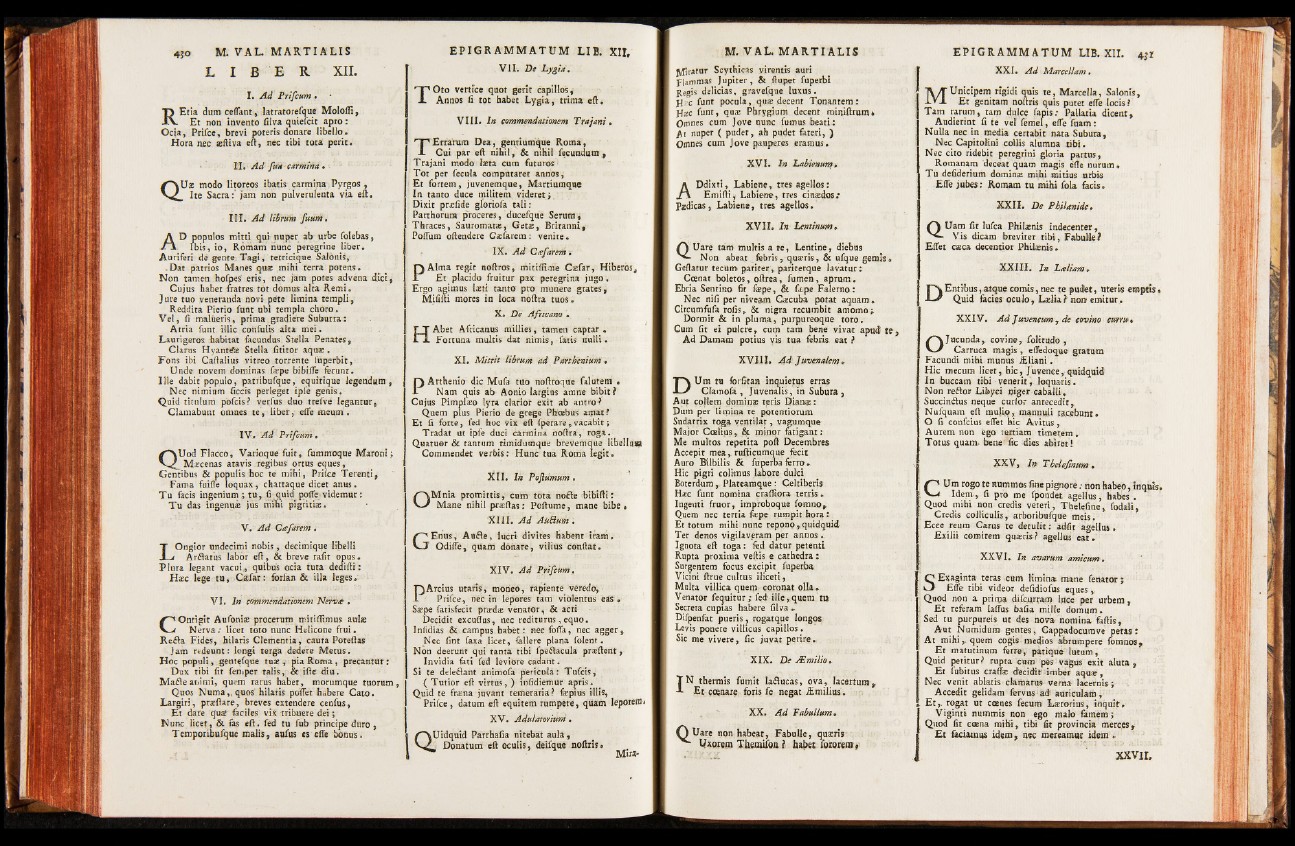 430 M. VAL. MARTIALIS
LIBER XII.
I. Ad Priſcum.
REtia dum ceſſant, latratoreſque Moloſſi,
Et non invento ſilva quieſcit apro:
Ocia, Priſce, brevi poteris donare libello.
Hora nec æſtiva eſt, nec tibi tota perit.
II. Ad ſua carmina.
QUæ modo litoreos ibatis carmina Pyrgos,
Ite Sacra: jam non pulverulenta via eſt.
III. Ad librum ſuum.
AD populos mitti qui nuper ab urbe ſolebas,
Ibis, io, Romam nunc peregrine liber.
Auriferi de gente Tagi, tetricique Salonis,
Dat patrios Manes quæ mihi terra potens.
Non tamen hoſpes eris, nec jam potes advena dici,
Cujus habet fratres tot domus alta Remi.
Jure tuo veneranda novi pete limina templi,
Reddita Pierio ſunt ubi templa choro.
Vel, ſi malueris, prima gradiere Suburra:
Atria ſunt illic conſulis alta mei.
Laurigeros habitat facundus Stella Penates,
Clarus Hyanteæ Stella ſititor aquæ.
Fons ibi Caſtalius vitreo torrente ſuperbit,
Unde novem dominas ſæpe bibiſſe ferunt.
Ille dabit populo, patribuſque, equitique legendum,
Nec nimium ſiccis perleget ipſe genis.
Quid titulum poſcis? verſus duo treſve legantur,
Clamabunt omnes te, liber, eſſe meum.
IV. Ad Priſcum.
QUod Flacco, Varioque fuit, ſummoque Maroni;
Mæcenas atavis regibus ortus eques,
Gentibus & populis hoc te mihi, Priſce Terenti,
Fama fuiſſe loquax, chartaque dicet anus.
Tu facis ingenium; tu, ſi quid poſſe videmur:
Tu das ingenuæ jus mihi pigritiæ.
V. Ad Cæſarem.
LOngior undecimi nobis, decimique libelli
Arctatus labor eſt, & breve raſit opus.
Plura legant vacui, quibus ocia tuta dediſti:
Hæc lege tu, Cæſar: forſan & illa leges.
VI. In commendationem Nervæ.
COntigit Auſoniæ procerum mitiſſimus aulæ
Nerva: licet toto nunc Helicone frui.
Recta Fides, hilaris Clementia, cauta Poteſtas
Jam redeunt: longi terga dedere Metus.
Hoc populi, genteſque tuæ, pia Roma, precantur:
Dux tibi ſit ſemper talis, & iſte diu.
Macte animi, quem rarus habet, morumque tuorum,
Quos Numa, quos hilaris poſſet habere Cato.
Largiri, præſtare, breves extendere cenſus,
Et dare quæ faciles vix tribuere dei;
Nunc licet, & fas eſt. ſed tu ſub principe duro,
Temporibuſque malis, auſus es eſſe bonus.
EPIGRAMMATUM LIB. XII.
VII. De Lygia.
TOto vertice quot gerit capillos,
Annos ſi tot habet Lygia, trima eſt.
VIII. In commendationem Trajani.
TErrarum Dea, gentiumque Roma,
Cui par eſt nihil, & nihil ſecundum,
Trajani modo læta cum futuros
Tot per ſecula computaret annos,
Et fortem, juvenemque, Martiumque
In tanto duce militem videret;
Dixit præſide glorioſa tali:
Parthorum proceres, duceſque Serum,
Thraces, Sauromatæ, Getæ, Britanni,
Poſſum oſtendere Cæſarem: venite.
IX. Ad Cæſarem.
PAlma regit noſtros, mitiſſime Cæſar, Hiberos,
Et placido fruitur pax peregrina jugo.
Ergo agimus læti tanto pro munere grates,
Miſiſti mores in loca noſtra tuos.
X. De Africano.
HAbet Africanus millies, tamen captar.
Fortuna multis dat nimis, ſatis nulli.
XI. Mittit librum ad Parthenium.
PArthenio dic Muſa tuo noſtroque ſalutem.
Nam quis ab Aonio largius amne bibit?
Cujus Pimplæo lyra clarior exit ab antro?
Quem plus Pierio de grege Phœbus amat?
Et ſi forte, ſed hoc vix eſt ſperare, vacabit;
Tradat ut ipſe duci carmina noſtra, roga.
Quatuor & tantum timidumque brevemque libellum
Commendet verbis: Hunc tua Roma legit.
XII. In Poſtumum.
OMnia promittis, cum tota nocte bibiſti:
Mane nihil præſtas: Poſtume, mane bibe.
XIII. Ad Auctum.
GEnus, Aucte, lucri divites habent iram.
Odiſſe, quam donare, vilius conſtat.
XIV. Ad Priſcum.
PArcius utaris, moneo, rapiente veredo,
Priſce, nec in lepores tam violentus eas.
Sæpe ſatisfecit prædæ venator, & acri
Decidit excuſſus, nec rediturus, equo.
Inſidias & campus habet: nec foſſa, nec agger,
Nec ſint ſaxa licet, fallere plana ſolent.
Non deerunt qui tanta tibi ſpectacula præſtent,
Invidia fati ſed leviore cadant.
Si te delectant animoſa pericula: Tuſcis,
(Tutior eſt virtus,) inſidiemur apris.
Quid te frena juvant temeraria? ſæpius illis,
Priſce, datum eſt equitem rumpere, quam leporem.
XV. Adulatorium.
QUidquid Parrhaſia nitebat aula,
Donatum eſt oculis, deiſque noſtris.
Mira-
M. VAL. MARTIALIS
Miratur Scythicas virentis auri
Flammas Jupiter, & ſtupet ſuperbi
Regis delicias, graveſque luxus.
Hæc ſunt pocula, quæ decent Tonantem:
Hæc ſunt, quæ Phrygium decent miniſtrum.
Omnes cum Jove nunc ſumus beati:
At nuper (pudet, ah pudet fateri,)
Omnes cum Jove pauperes eramus.
XVI. In Labienum.
ADdixti, Labiene, tres agellos:
Emiſti, Labiene, tres cinædos:
Pædicas, Labiene, tres agellos.
XVII. In Lentinum.
QUare tam multis a te, Lentine, diebus
Non abeat febris, quæris, & uſque gemis.
Geſtatur tecum pariter, pariterque lavatur:
Cœnat boletos, oſtrea, ſumen, aprum.
Ebria Sentino fit ſæpe, & ſæpe Falerno:
Nec niſi per niveam Cæcuba potat aquam.
Circumfuſa roſis, & nigra recumbit amomo;
Dormit & in pluma, purpureoque toro.
Cum ſit ei pulcre, cum tam bene vivat apud te,
Ad Damam potius vis tua febris eat?
XVIII. Ad Juvenalem.
DUm tu forſitan inquietus erras
Clamoſa, Juvenalis, in Subura,
Aut collem dominæ teris Dianæ:
Dum per limina te potentiorum
Sudatrix toga ventilat, vagumque
Major Cœlius, & minor fatigant:
Me multos repetita poſt Decembres
Accepit mea, ruſticumque fecit
Auro Bilbilis & ſuperba ferro.
Hic pigri colimus labore dulci
Boterdum, Plateamque: Celtiberis
Hæc ſunt nomina craſſiora terris.
Ingenti fruor, improboque ſomno,
Quem nec tertia ſæpe rumpit hora:
Et totum mihi nunc repono, quidquid
Ter denos vigilaveram per annos.
Ignota eſt toga: ſed datur petenti
Rupta proxima veſtis e cathedra:
Surgentem focus excipit ſuperba
Vicini ſtrue cultus iliceti,
Multa villica quem coronat olla.
Venator ſequitur; ſed ille, quem tu
Secreta cupias habere ſilva.
Diſpenſat pueris, rogatque longos
Levis ponere villicus capillos.
Sic me vivere, ſic juvat perire.
XIX. De Æmilio.
IN thermis ſumit lactucas, ova, lacertum,
Et cœnare foris ſe negat Æmilius.
XX. Ad Fabullum.
QUare non habeat, Fabulle, quæris
Uxorem Themiſon? habet ſororem.
EPIGRAMMATUM LIB. XII. 431
XXI. Ad Marcellam.
MUnicipem rigidi quis te, Marcella, Salonis,
Et genitam noſtris quis putet eſſe locis?
Tam rarum, tam dulce ſapis: Pallatia dicent,
Audierint ſi te vel ſemel, eſſe ſuam:
Nulla nec in media certabit nata Subura,
Nec Capitolini collis alumna tibi.
Nec cito ridebit peregrini gloria partus,
Romanam deceat quam magis eſſe nurum.
Tu deſiderium dominæ mihi mitius urbis
Eſſe jubes: Romam tu mihi ſola facis.
XXII. De Philænide.
QUam ſit luſca Philænis indecenter,
Vis dicam breviter tibi, Fabulle?
Eſſet cæca decentior Philænis.
XXIII. In Læliam.
DEntibus, atque comis, nec te pudet, uteris emptis.
Quid facies oculo, Lælia? non emitur.
XXIV. Ad Juvencum, de covino curru.
OJucunda, covine, ſolitudo,
Carruca magis, eſſedoque gratum
Facundi mihi munus Æliani.
Hic mecum licet, hic, Juvence, quidquid
In buccam tibi venerit, loquaris.
Non rector Libyci niger caballi,
Succinctus neque curſor antecedit,
Nuſquam eſt mulio, mannuli tacebunt.
O ſi conſcius eſſet hic Avitus,
Aurem non ego tertiam timerem.
Totus quam bene ſic dies abiret!
XXV. In Theleſinum.
CUm rogo te nummos ſine pignore: non habeo, inquis.
Idem, ſi pro me ſpondet agellus, habes.
Quod mihi non credis veteri, Theleſine, ſodali,
Credis colliculis, arboribuſque meis.
Ecce reum Carus te detulit: adſit agellus.
Exilii comitem quæris? agellus eat.
XXVI. In avarum amicum.
SExaginta teras cum limina mane ſenator;
Eſſe tibi videor deſidioſus eques,
Quod non a prima diſcurram luce per urbem,
Et referam laſſus baſia mille domum.
Sed tu purpureis ut des nova nomina faſtis,
Aut Numidum gentes, Cappadocumve petas:
At mihi, quem cogis medios abrumpere ſomnos,
Et matutinum ferre, patique lutum,
Quid petitur? rupta cum pes vagus exit aluta,
Et ſubitus craſſæ decidit imber aquæ,
Nec venit ablatis clamatus verna lacernis;
Accedit gelidam ſervus ad auriculam,
Et, rogat ut cœnes ſecum Lætorius, inquit.
Viginti nummis non ego malo famem;
Quod ſit cœna mihi, tibi ſit provincia merces,
Et faciamus idem, nec mereamur idem.
XXVII.